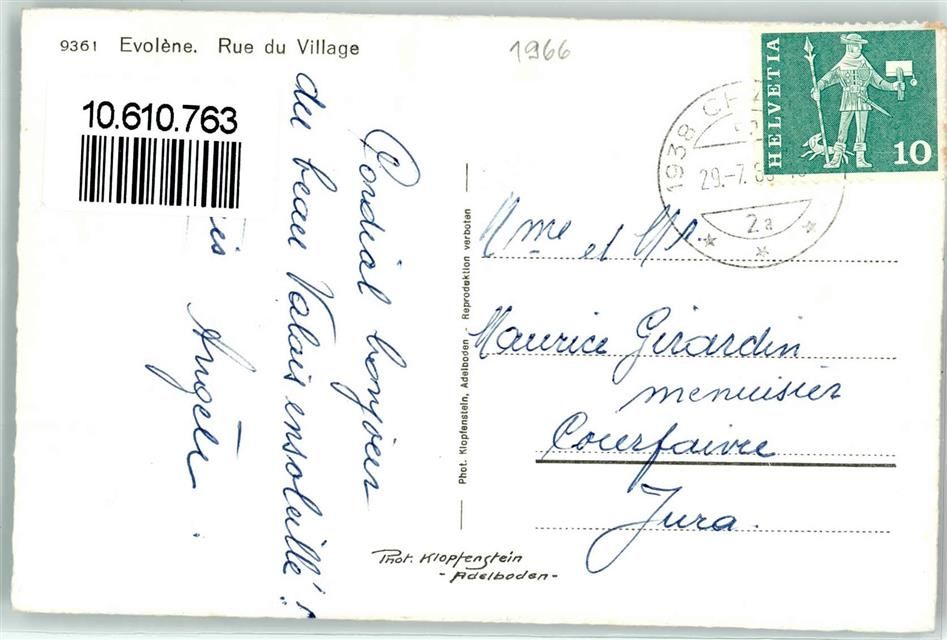 9361 Evolène. Rue du Village
1966
10.610.763
Cordial bonjour
du beau Valais ensoleillé!
Angèle.
Phot. Klopfenstein, Adelboden - Reproduktion verboten
Phot. Klopfenstein
- Adelboden -
HELVETIA
10
1938
29.-7.
2a
Mme et Mr.
Maurice Girardin
menuisier
Courfaivre
Jura.